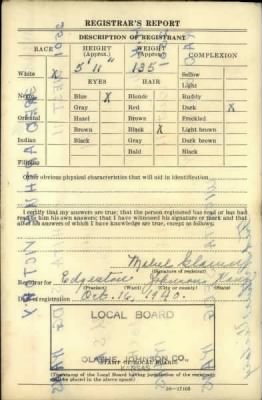 REGISTRAR'S REPORT
DESCRIPTION OF REGISTRANT
RACE HEIGHT (Approx.) WEIGHT (Approx.) COMPLEXION
White X 5' 11" 135 Sallow
EYES HAIR Light
Negro Blue X Blonde Ruddy
Gray Red Dark X
Oriental Hazel Brown Freckled
Brown Black X Light brown
Indian Black Gray Dark brown
Bald Black
Filipino
Other obvious physical characteristics that will aid in identification
I certify that my answers are true; that the person registered has read or has had
read to him his own answers; that I have witnessed his signature or mark and that
all of his answers of which I have knowledge are true, except as follows:
(Signature of registrar)
Registrar for Edgerton Johnson Kans
(Precinct) (Ward) (City or county) (State)
Date of registration Oct. 16, 1940.
LOCAL BOARD
OLATHE, JOHNSON CO.,
KANSAS
(STAMP OF LOCAL BOARD)
(The stamp of the Local Board having jurisdiction of the registrant
shall be placed in the above space)